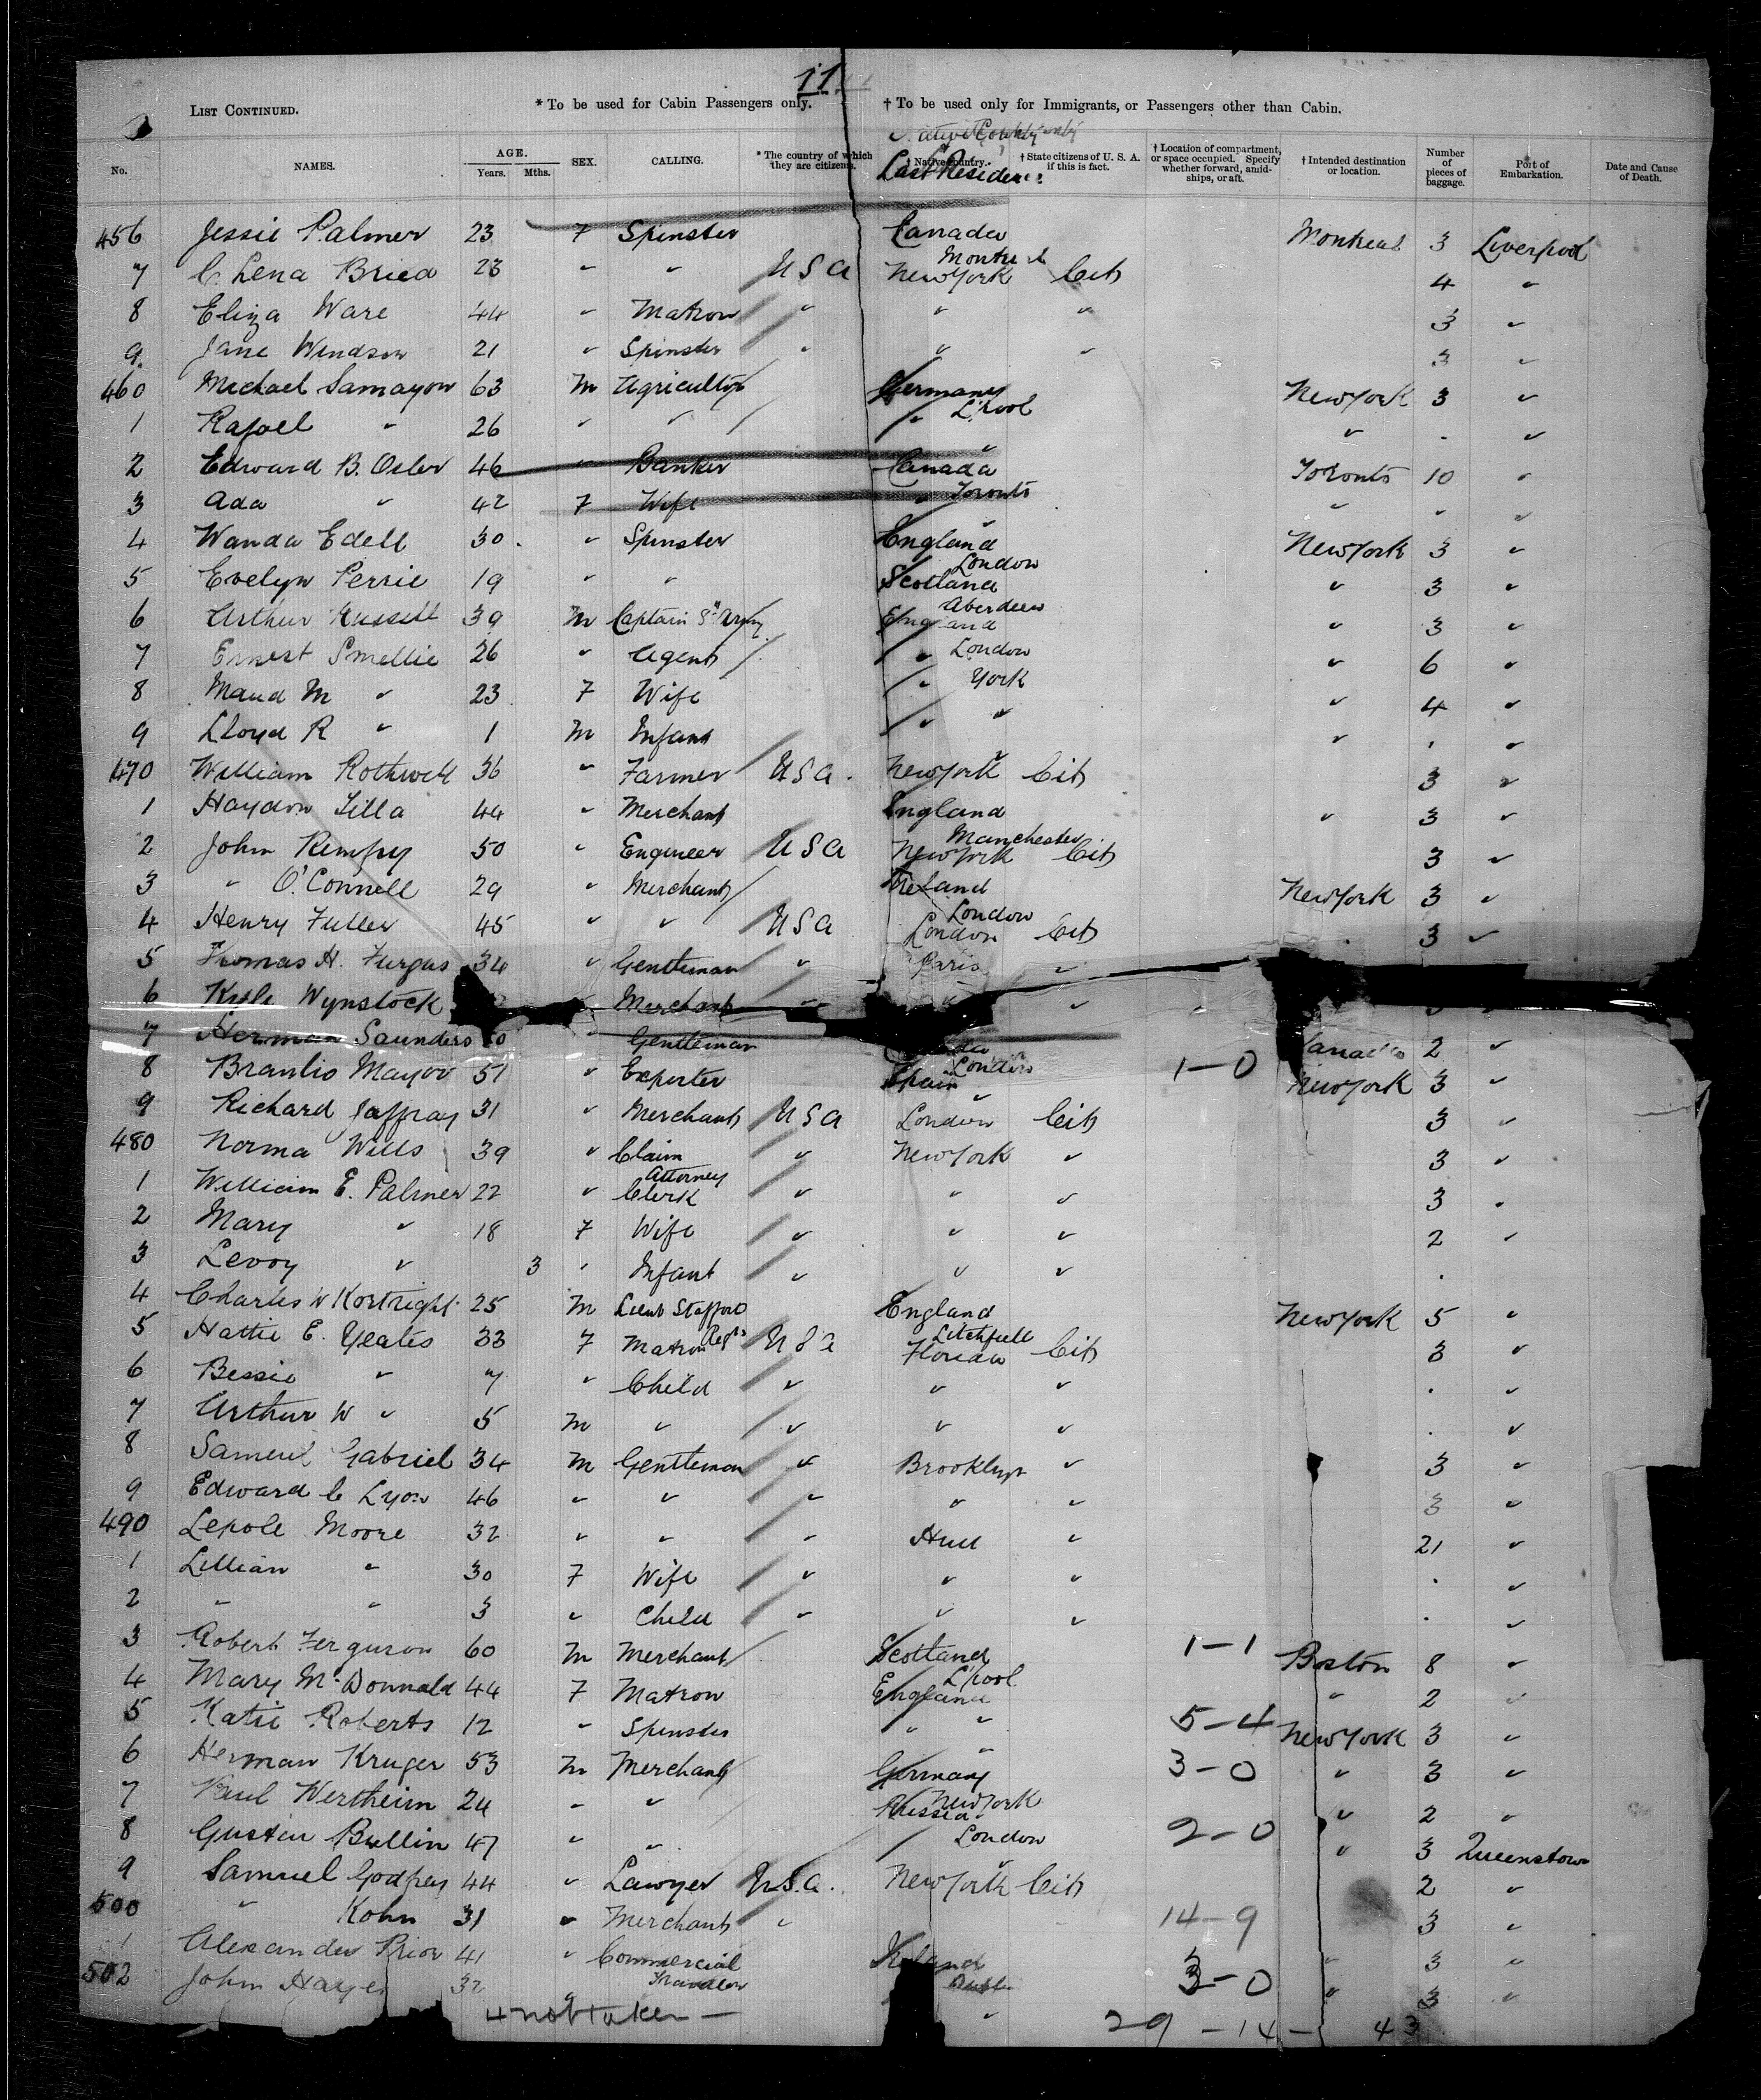 11
LIST CONTINUED. * To be used for Cabin Passengers only. † To be used only for Immigrants, or Passengers other than Cabin.
No. NAMES. AGE. Years. Mths. SEX. CALLING. * The country of which they are citizens. † Native country. Last Residence † State citizens of U. S. A. if this is fact. † Location of compartment, or space occupied. Specify whether forward, amidships, or aft. † Intended destination or location. Number of pieces of baggage. Port of Embarkation. Date and Cause of Death.
456 Jessie Palmer 23 F Spinster Canada Montreal Montreal 3 Liverpool
7 C. Lena Bried 23 " " U S A New York Cit 4 "
8 Eliza Ware 44 " Matron " " " 3 "
9. Jane Windsor 21 " Spinster " " " 3 "
460 Michael Samayou 63 M Agricultor Germany L'pool New York 3 "
1 Rafael " 26 " " " " " . "
2 Edward B. Osler 46 " Banker Canada Toronto Toronto 10 "
3 Ada " 42 F Wife " " " " "
4 Wanda Edell 30. " Spinster England London New York 3 "
5 Evelyn Perrie 19 " " Scotland Aberdeen " 3 "
6 Arthur Russell 39 M Captain Sn Army England London " 3 "
7 Ernest Smellie 26 " Agent " York " 6 "
8 Maud M " 23 F Wife " " " 4 "
9 Lloyd R " 1 M Infant " " " . "
470 William Rothwell 36 " Farmer U S A. New York Cit 3 "
1 Haydon Tilla 44 " Merchant England Manchester " 3 "
2 John Kempy 50 " Engineer U S A New York Cit 3 "
3 " O'Connell 29 " Merchant Ireland London New York 3 "
4 Henry Fuller 45 " " U S A London Cit 3 "
5 Thomas H. Furgus 34 " Gentleman " Paris " "
6 Kyle Wynstock Merchant " "
7 Herman Saunders " Gentleman London Canada 2 "
8 Braulio Mayor 51 " Exporter Spain " 1-0 New York 3 "
9 Richard Jaffray 31 " Merchant U S A London Cit 3 "
480 Norma Wills 39 " Claim Attorney " New York " 3 "
1 William E. Palmer 22 " Clerk " " " 3 "
2 Mary " 18 F Wife " " " 2 "
3 Levoy " 3 " Infant " " " .
4 Charles W Kortright 25 M Lieut Stafford Regt England Litchfield New York 5 "
5 Hattie E. Yeates 33 F Matron U S A Florida Cit 3 "
6 Bessie " 7 " Child " " " . "
7 Arthur W " 5 M " " " " . "
8 Samuel Gabriel 34 M Gentleman " Brooklyn " 3 "
9 Edward C Lyon 46 " " " " " 3 "
490 Lepole Moore 32 " " " Hull " 21 "
1 Lillian " 30 F Wife " " " . "
2 " " 3 " Child " " " . "
3 Robert Ferguson 60 M Merchant Scotland L'pool 1-1 Boston 8 "
4 Mary McDonnald 44 F Matron England " " 2 "
5 Katie Roberts 12 " Spinster " " 5-4 New York 3 "
6 Herman Kruger 53 M Merchant Germany New York 3-0 " 3 "
7 Paul Wertheim 24 " " Russia London " 2 "
8 Gustav Bullin 47 " " " 2-0 " 3 Queenstown
9 Samuel Godfrey 44 " Lawyer U.S.A. New York Cit 2 "
500 " Kohn 31 " Merchant " 14-9 3 "
1 Alexander Prior 41 " Commercial Traveller Ireland " 3 "
502 John Hayes 32 " " 3-0 " 3 "
4 not taken — 29-14- 43